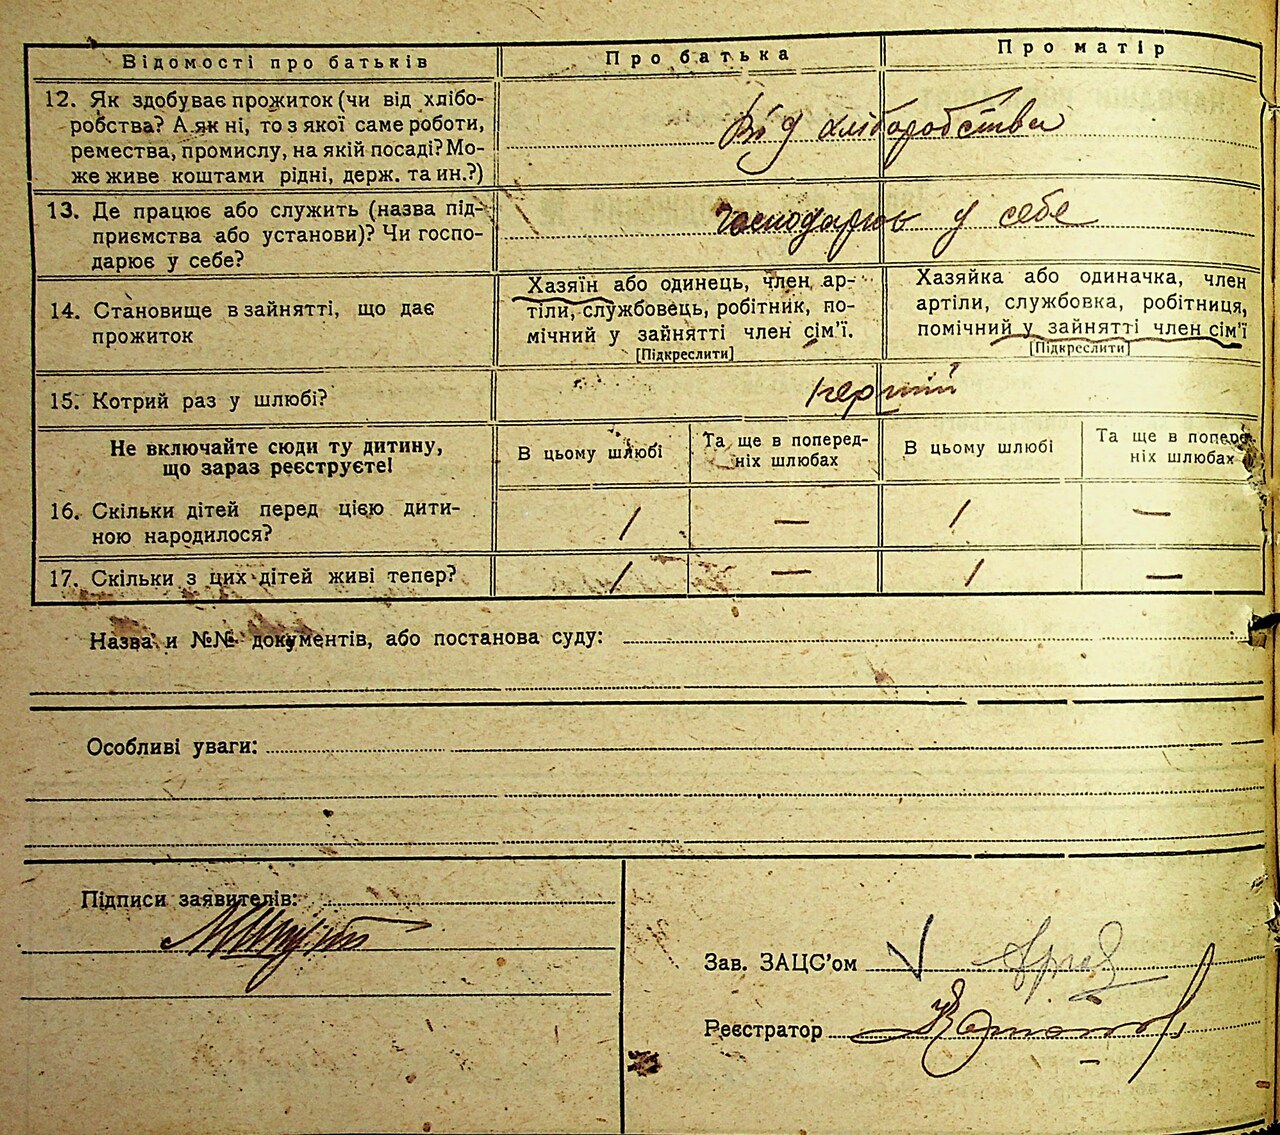 Відомості про батьків
Про батька
Про матір
12. Як здобуває прожиток (чи від хлібо-
робства? А як ні, то з якої саме роботи,
ремества, промислу, на якій посаді? Мо-
же живе коштами рідні, держ. та ин.?)
Від хліборобства
13. Де працює або служить (назва під-
приємства або установи)? Чи госпо-
дарює у себе?
господарює у себе
14. Становище в зайнятті, що дає
прожиток
Хазяїн або одинець, член ар-
тіли, службовець, робітник, по-
мічний у зайнятті член сім'ї.
[Підкреслити]
Хазяйка або одиначка, член
артіли, службовка, робітниця,
помічний у зайнятті член сім'ї
[Підкреслити]
15. Котрий раз у шлюбі?
первий
Не включайте сюди ту дитину,
що зараз реєструєте!
В цьому шлюбі
Та ще в поперед-
ніх шлюбах
В цьому шлюбі
Та ще в поперед-
ніх шлюбах
16. Скільки дітей перед цією дити-
ною народилося?
1 — 1 —
17. Скільки з цих дітей живі тепер?
1 — 1 —
Назва и №№ документів, або постанова суду:
Особливі уваги:
Підписи заявителів:
Зав. ЗАЦС'ом
Реєстратор